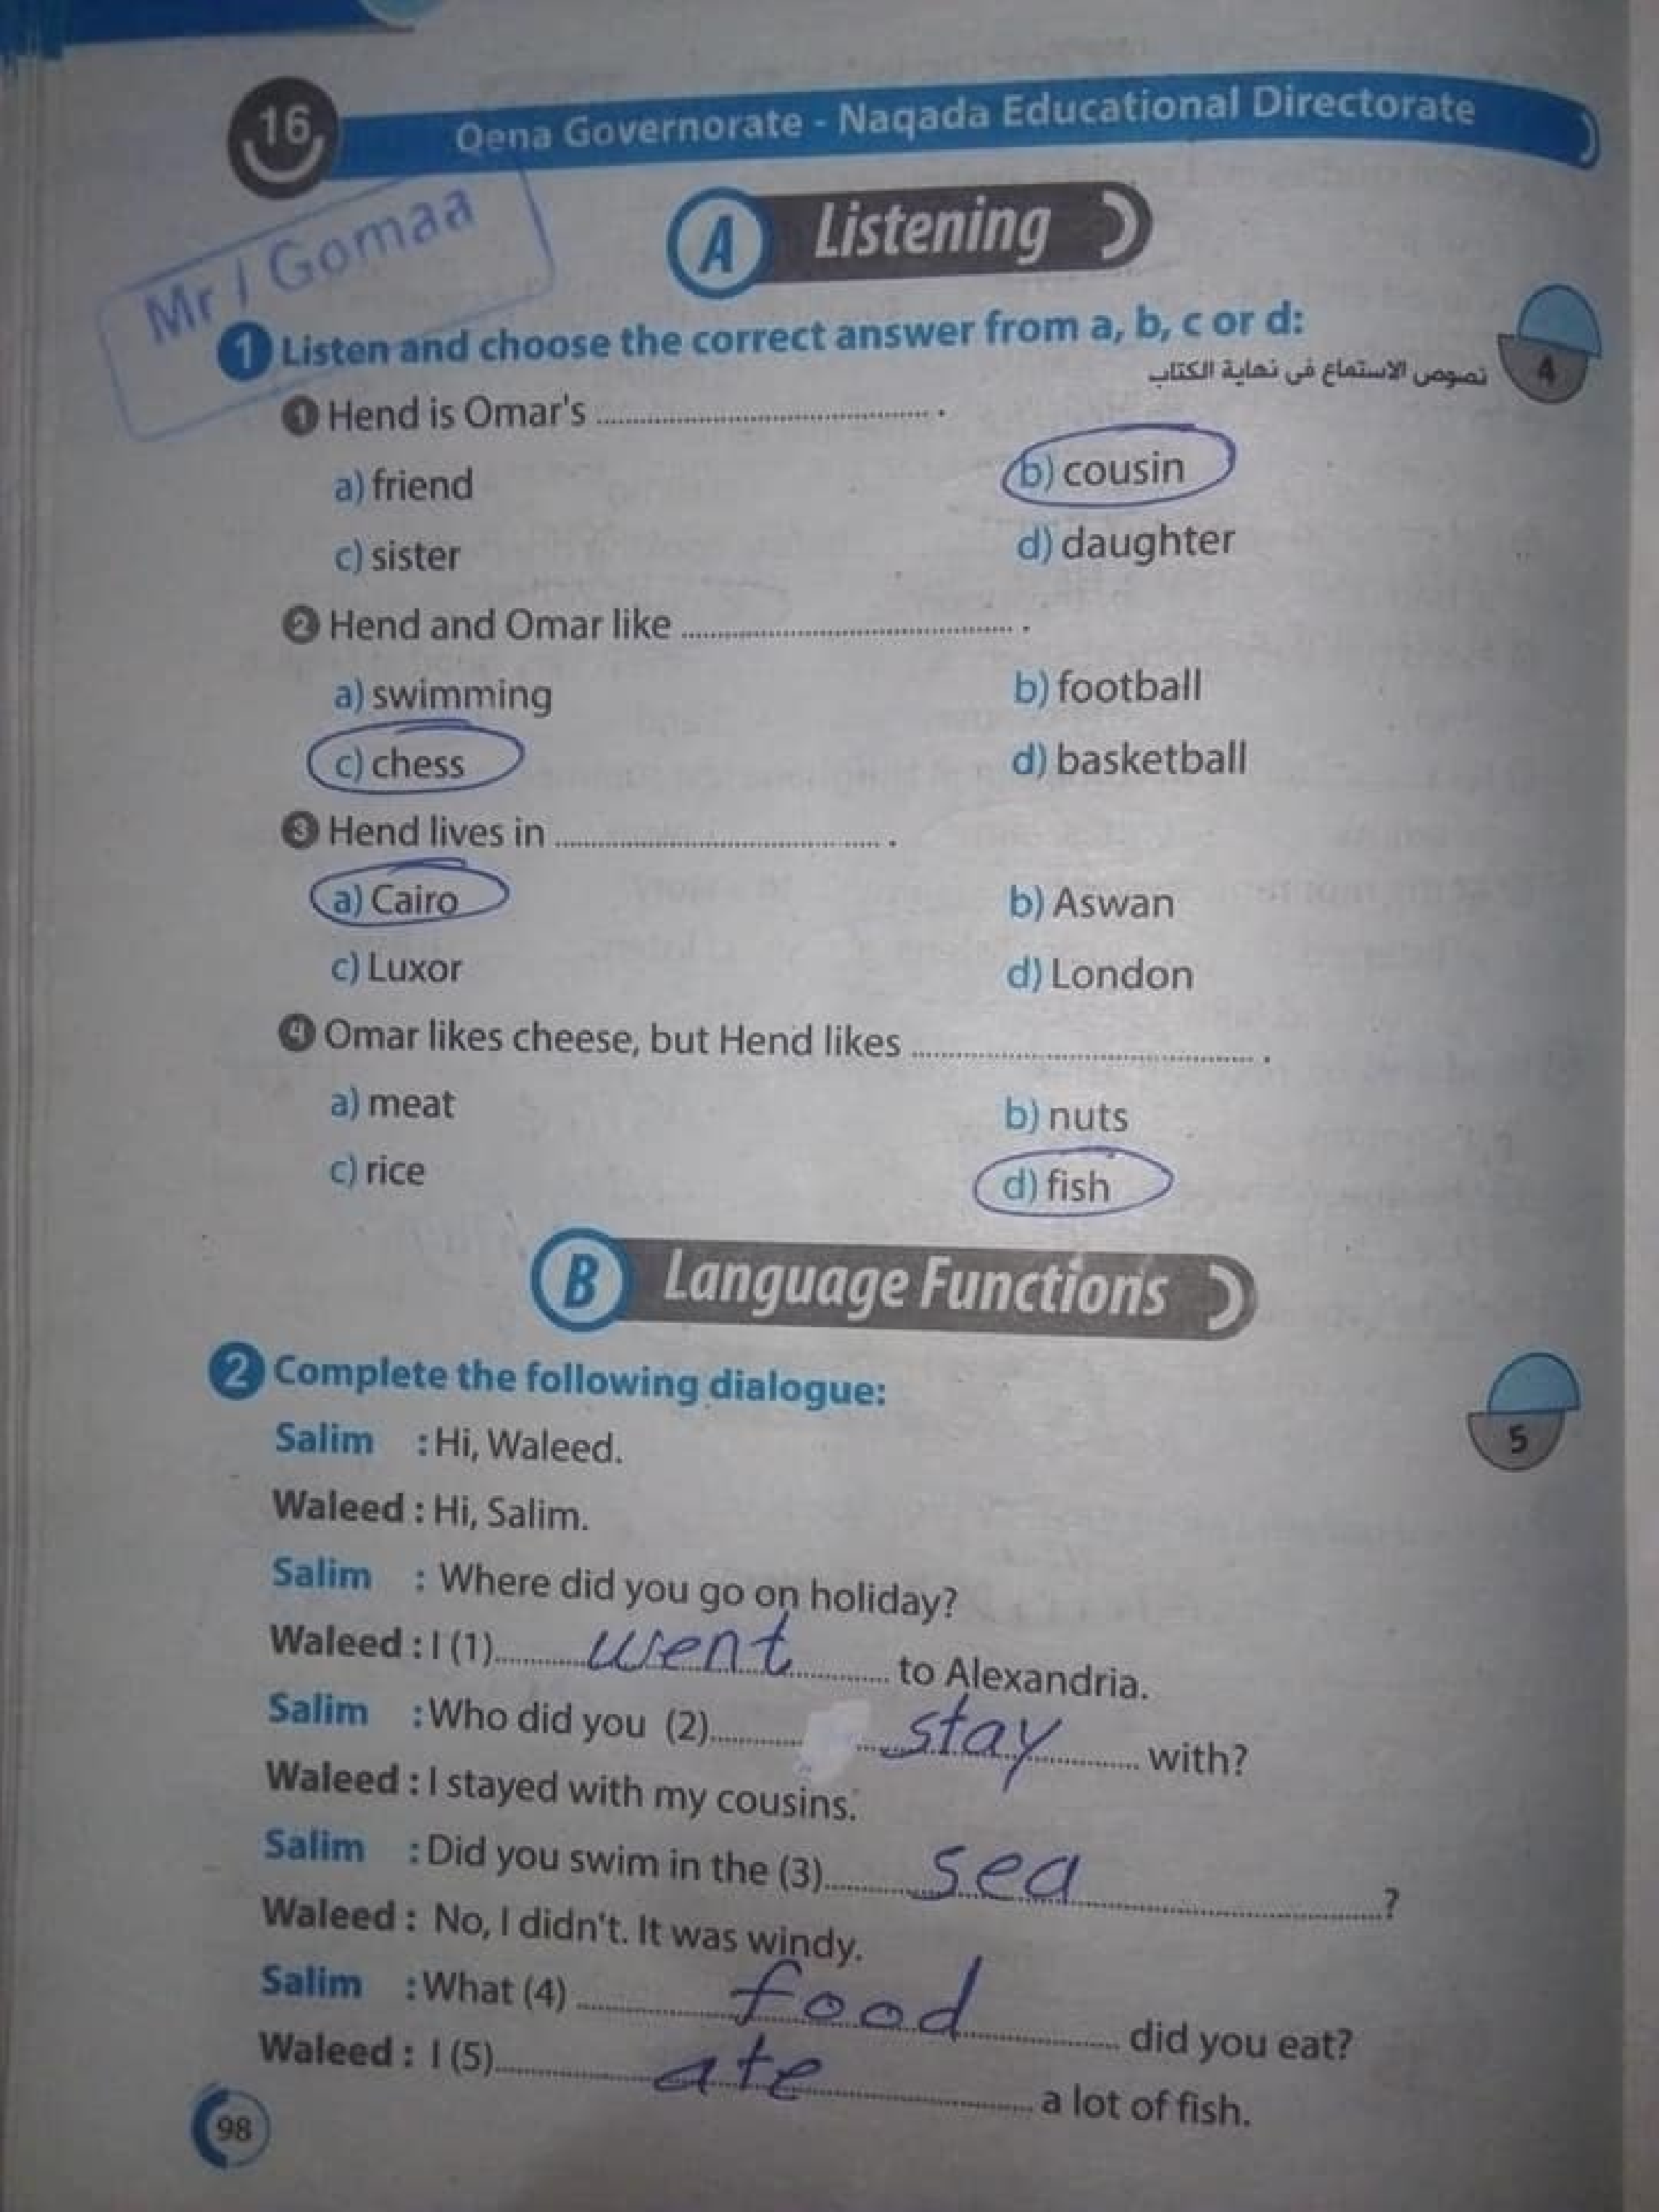 16
Qena Governorate - Naqada Educational Directorate
Mr / Gomaa
A Listening
1 Listen and choose the correct answer from a, b, c or d:
4
نصوص الاستماع فى نهاية الكتاب
1 Hend is Omar's .
a) friend b) cousin
c) sister d) daughter
2 Hend and Omar like .
a) swimming b) football
c) chess d) basketball
3 Hend lives in .
a) Cairo b) Aswan
c) Luxor d) London
4 Omar likes cheese, but Hend likes .
a) meat b) nuts
c) rice d) fish
B Language Functions
2 Complete the following dialogue:
5
Salim : Hi, Waleed.
Waleed : Hi, Salim.
Salim : Where did you go on holiday?
Waleed : I (1) went to Alexandria.
Salim : Who did you (2) stay with?
Waleed : I stayed with my cousins.
Salim : Did you swim in the (3) sea ?
Waleed : No, I didn't. It was windy.
Salim : What (4) food did you eat?
Waleed : I (5) ate a lot of fish.
98